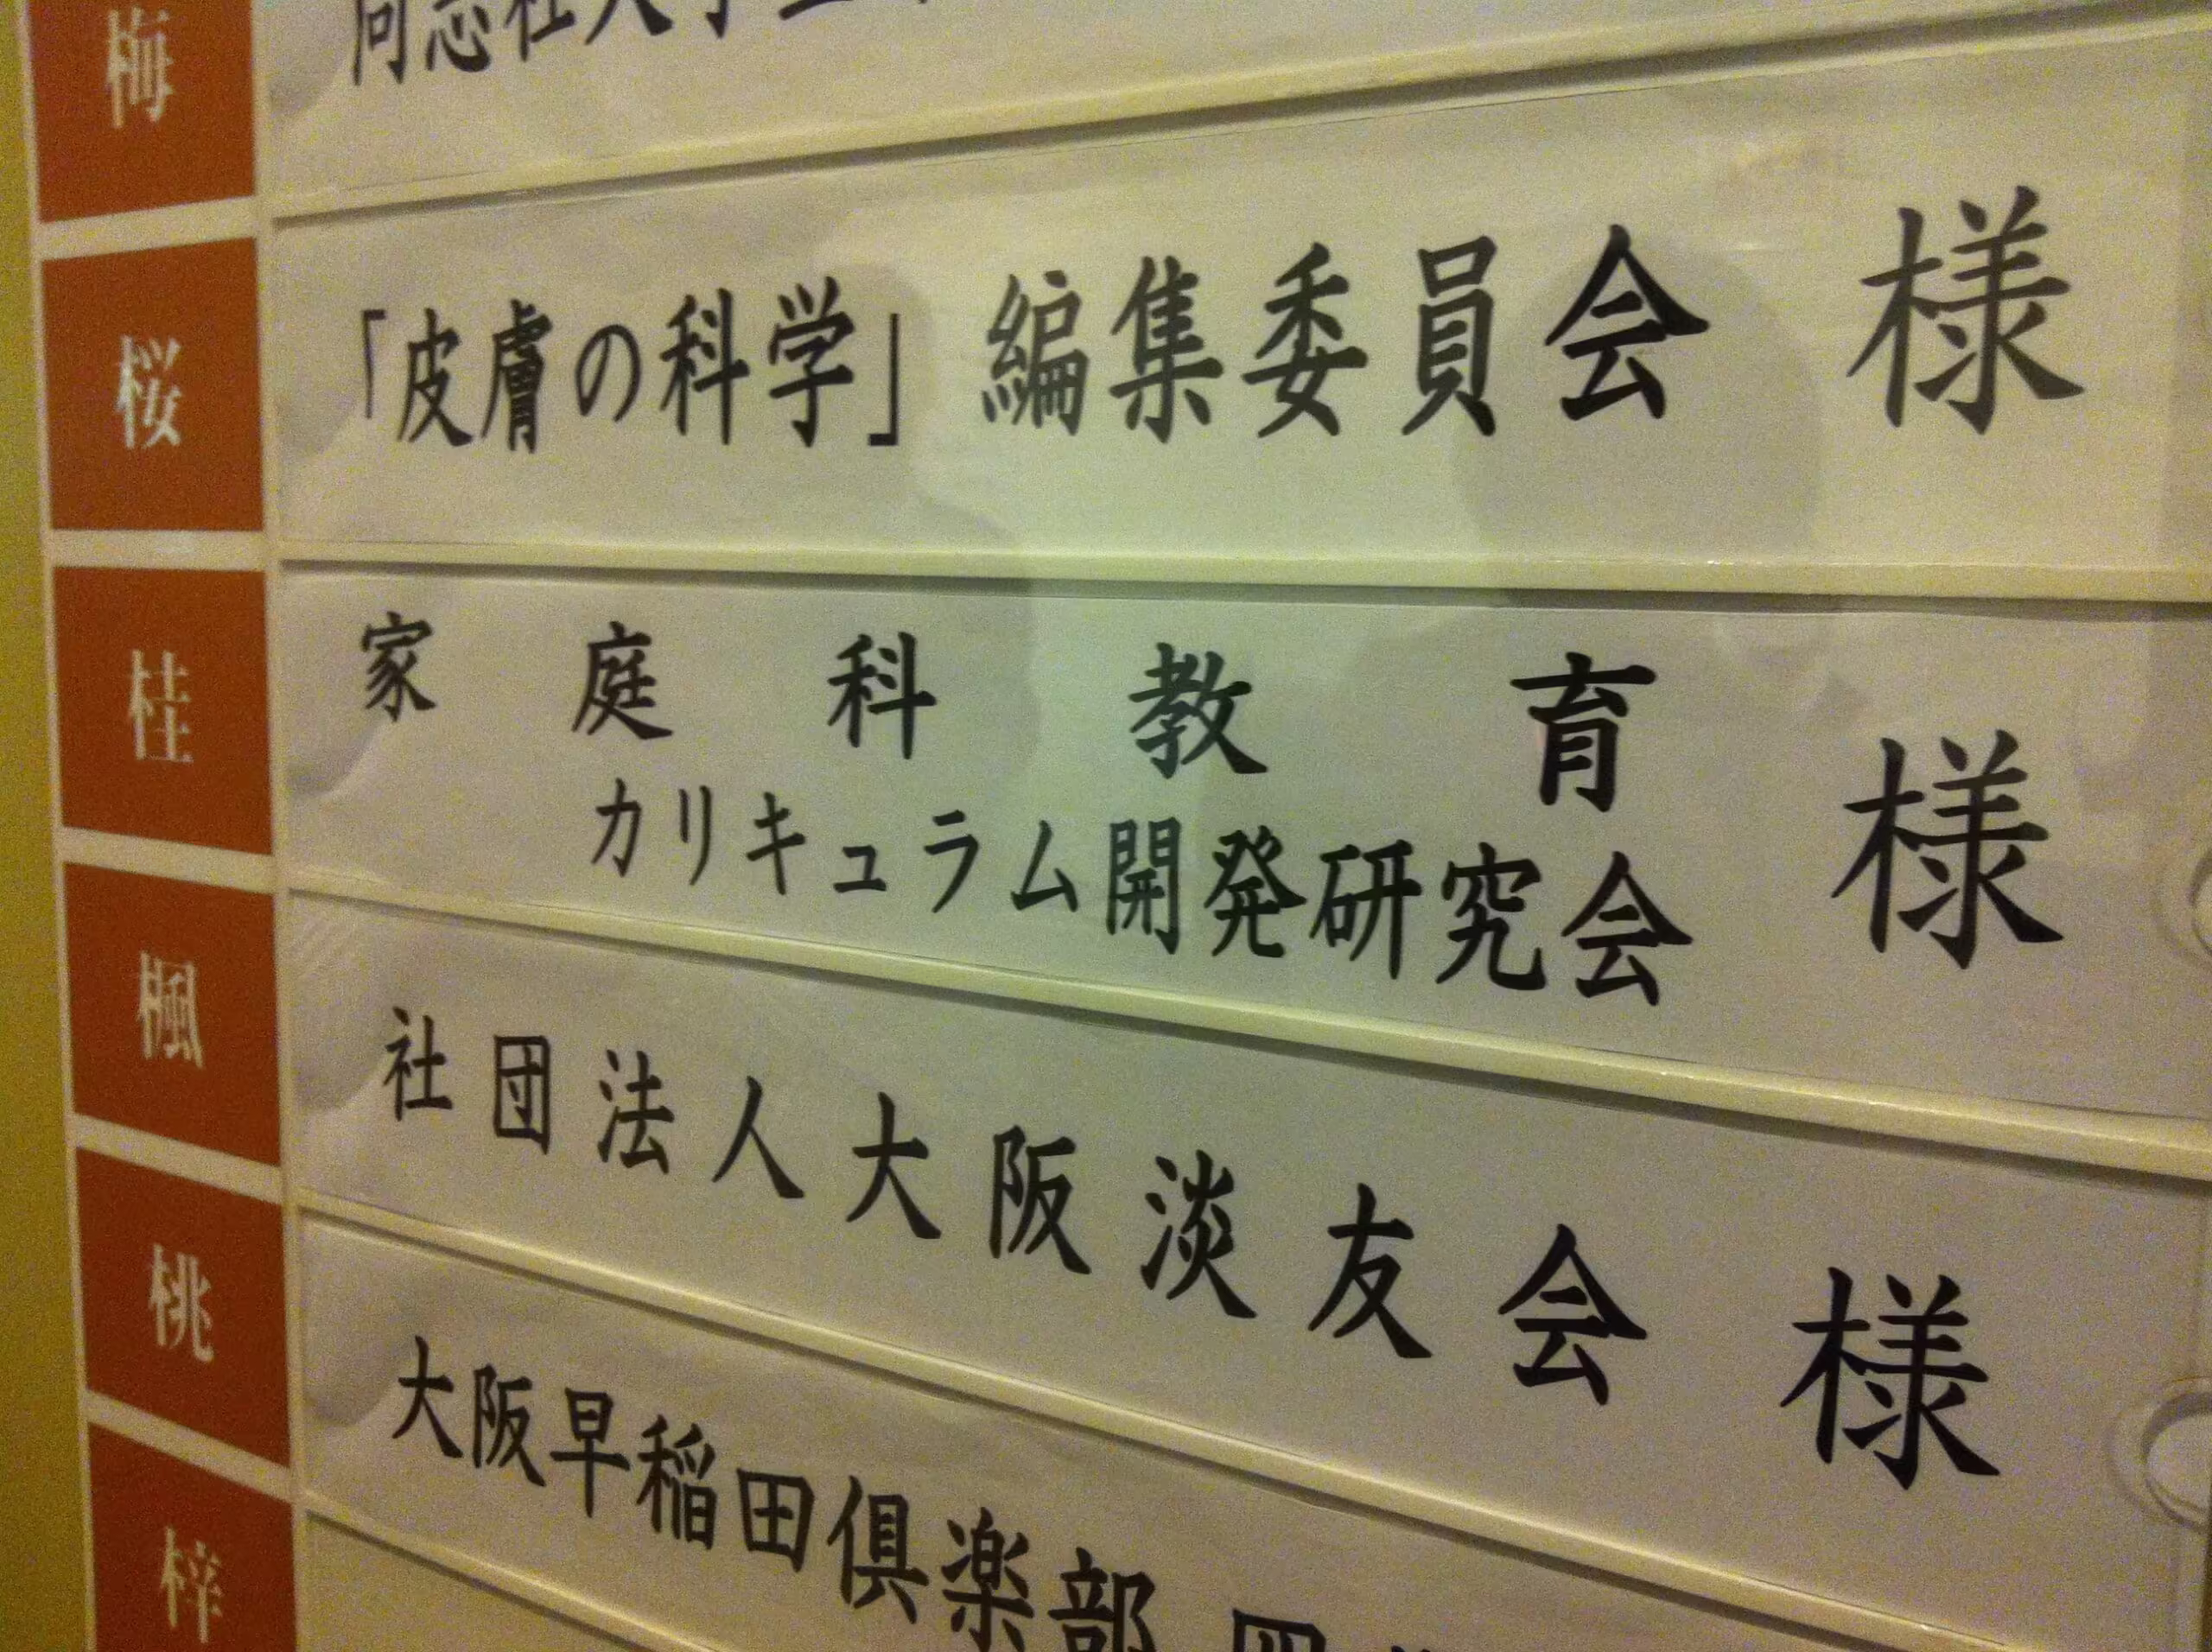 梅 同志社大学
桜 「皮膚の科学」 編集委員会 様
桂 家庭科教育
カリキュラム開発研究会 様
楓 社団法人大阪淡友会 様
桃 大阪早稲田倶楽部
梓